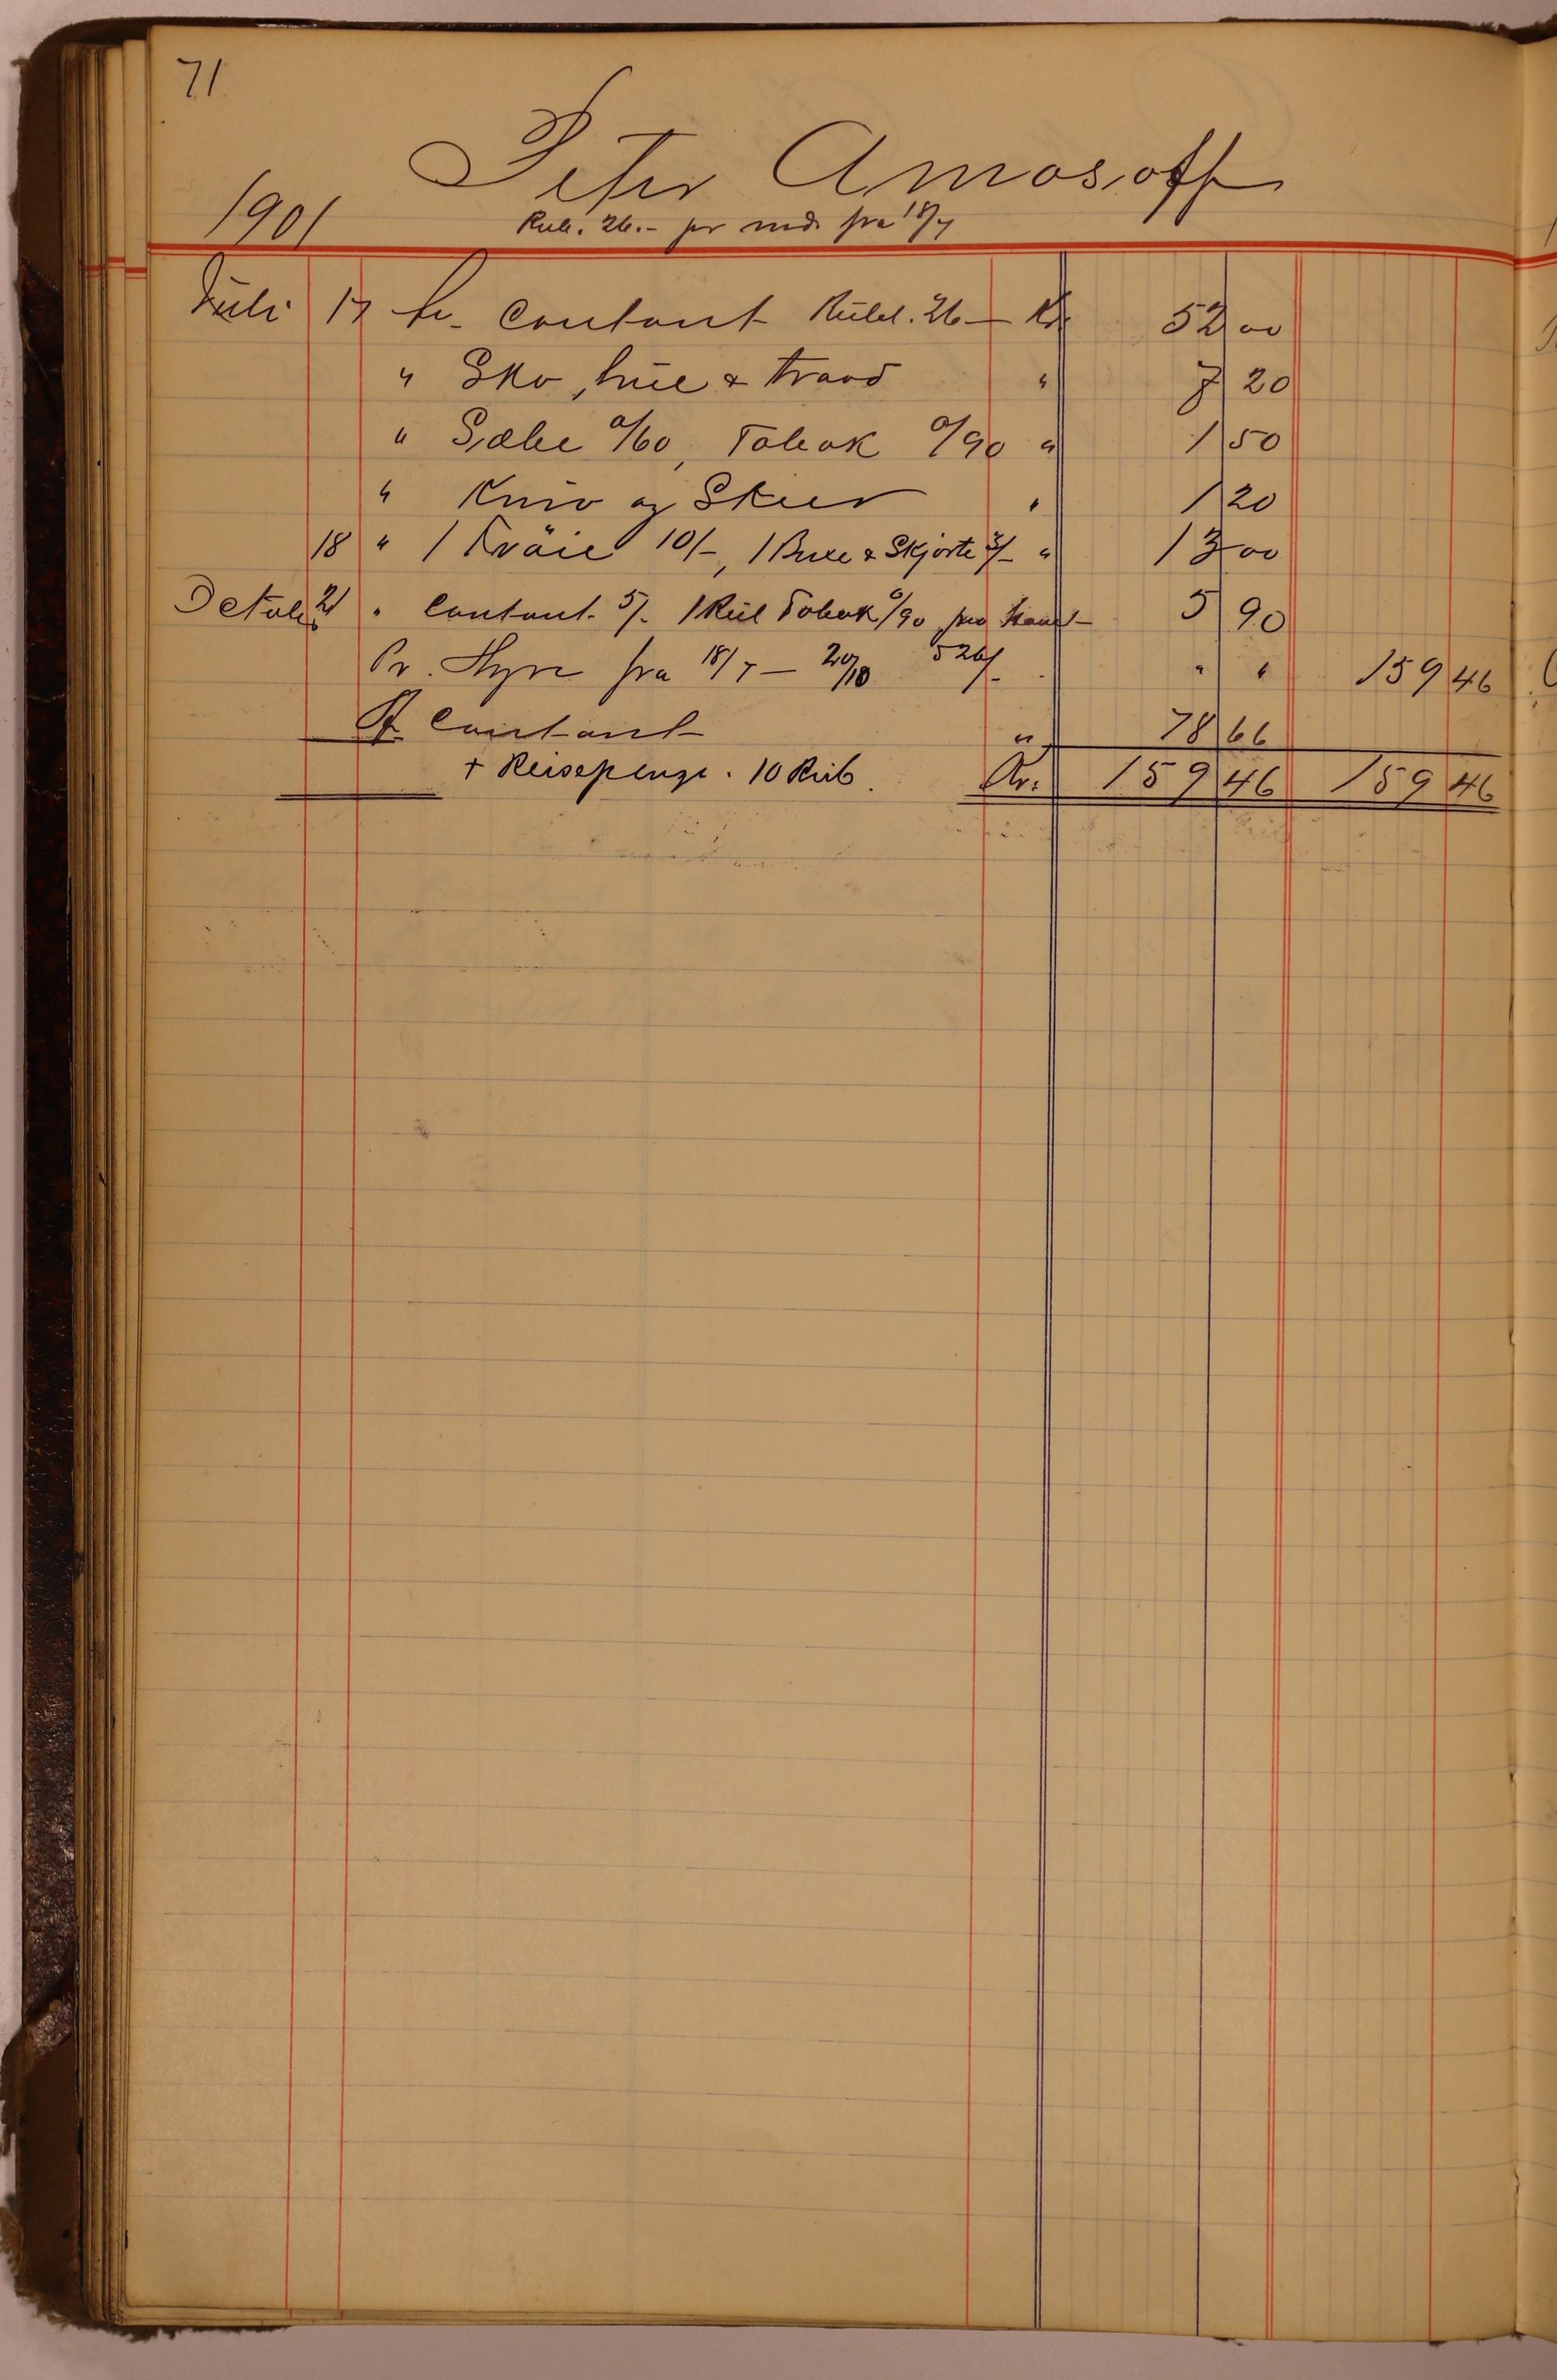 71
Peter Amosoff
1901
Rub. 26.- pr md. fra 18/7
Juli 17 Tr. Contant Rubl. 26 — Kr 52 00
" Sko, hue & traad " 7 20
" Sæbe 0/60, Tobak 0/90 " 1 50
" Kniv og Skeer " 1 20
18 " 1 Tröie 10/-, 1 Buxe & Skjorte 3/- " 13 00
Octob. 21 " Contant 5/- 1 Rul Tobak 0/90 5 90
Pr. Hyre fra 18/7 — 20/10 52/- " " 159 46
Pr Contant " 78 66
+ Reisepenge. 10 Rub. Kr. 159 46 159 46